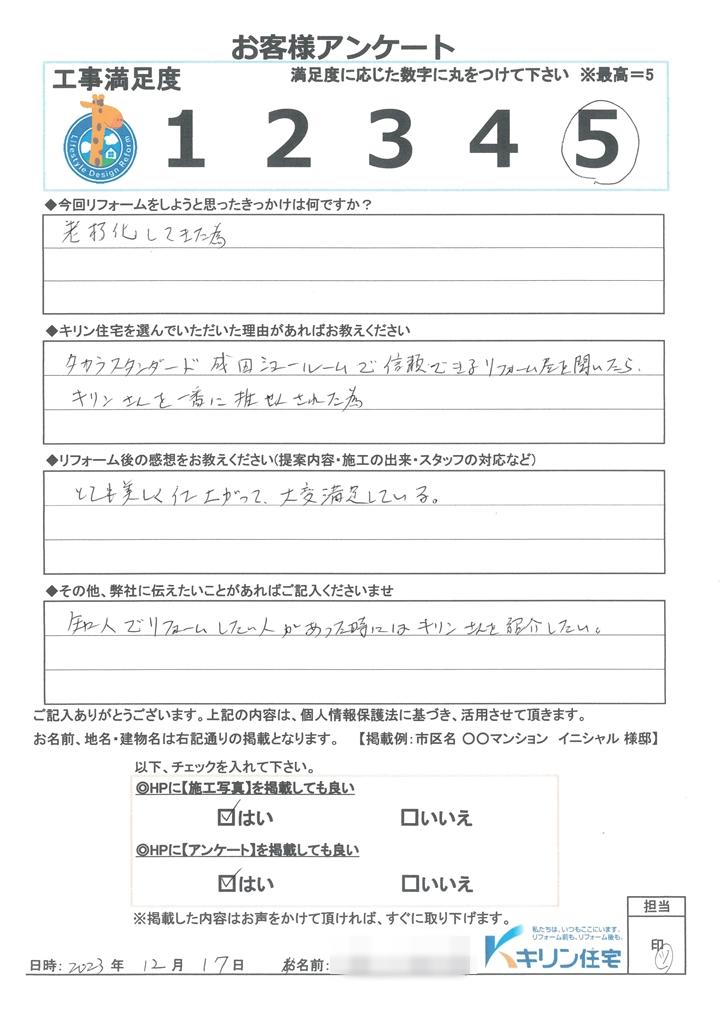 お客様アンケート
工事満足度
満足度に応じた数字に丸をつけて下さい ※最高=5
Lifestyle Design Reform
1 2 3 4 5
◆今回リフォームをしようと思ったきっかけは何ですか?
老朽化してきた為
◆キリン住宅を選んでいただいた理由があればお教えください
タカラスタンダード 成田ショールームで信頼できるリフォーム屋を聞いたら、
キリンさんを一番に推せんされた為
◆リフォーム後の感想をお教えください(提案内容・施工の出来・スタッフの対応など)
とても美しく仕上がって、大変満足している。
◆その他、弊社に伝えたいことがあればご記入くださいませ
知人でリフォームしたい人があった時にはキリンさんを紹介したい。
ご記入ありがとうございます。上記の内容は、個人情報保護法に基づき、活用させて頂きます。
お名前、地名・建物名は右記通りの掲載となります。 【掲載例:市区名 〇〇マンション イニシャル 様邸】
以下、チェックを入れて下さい。
◎HPに【施工写真】を掲載しても良い
☑はい □いいえ
◎HPに【アンケート】を掲載しても良い
☑はい □いいえ
※掲載した内容はお声をかけて頂ければ、すぐに取り下げます。
担当
印
私たちは、いつもここにいます。
リフォーム前も、リフォーム後も。
キリン住宅
日時: 2023 年 12 月 17 日 お名前: